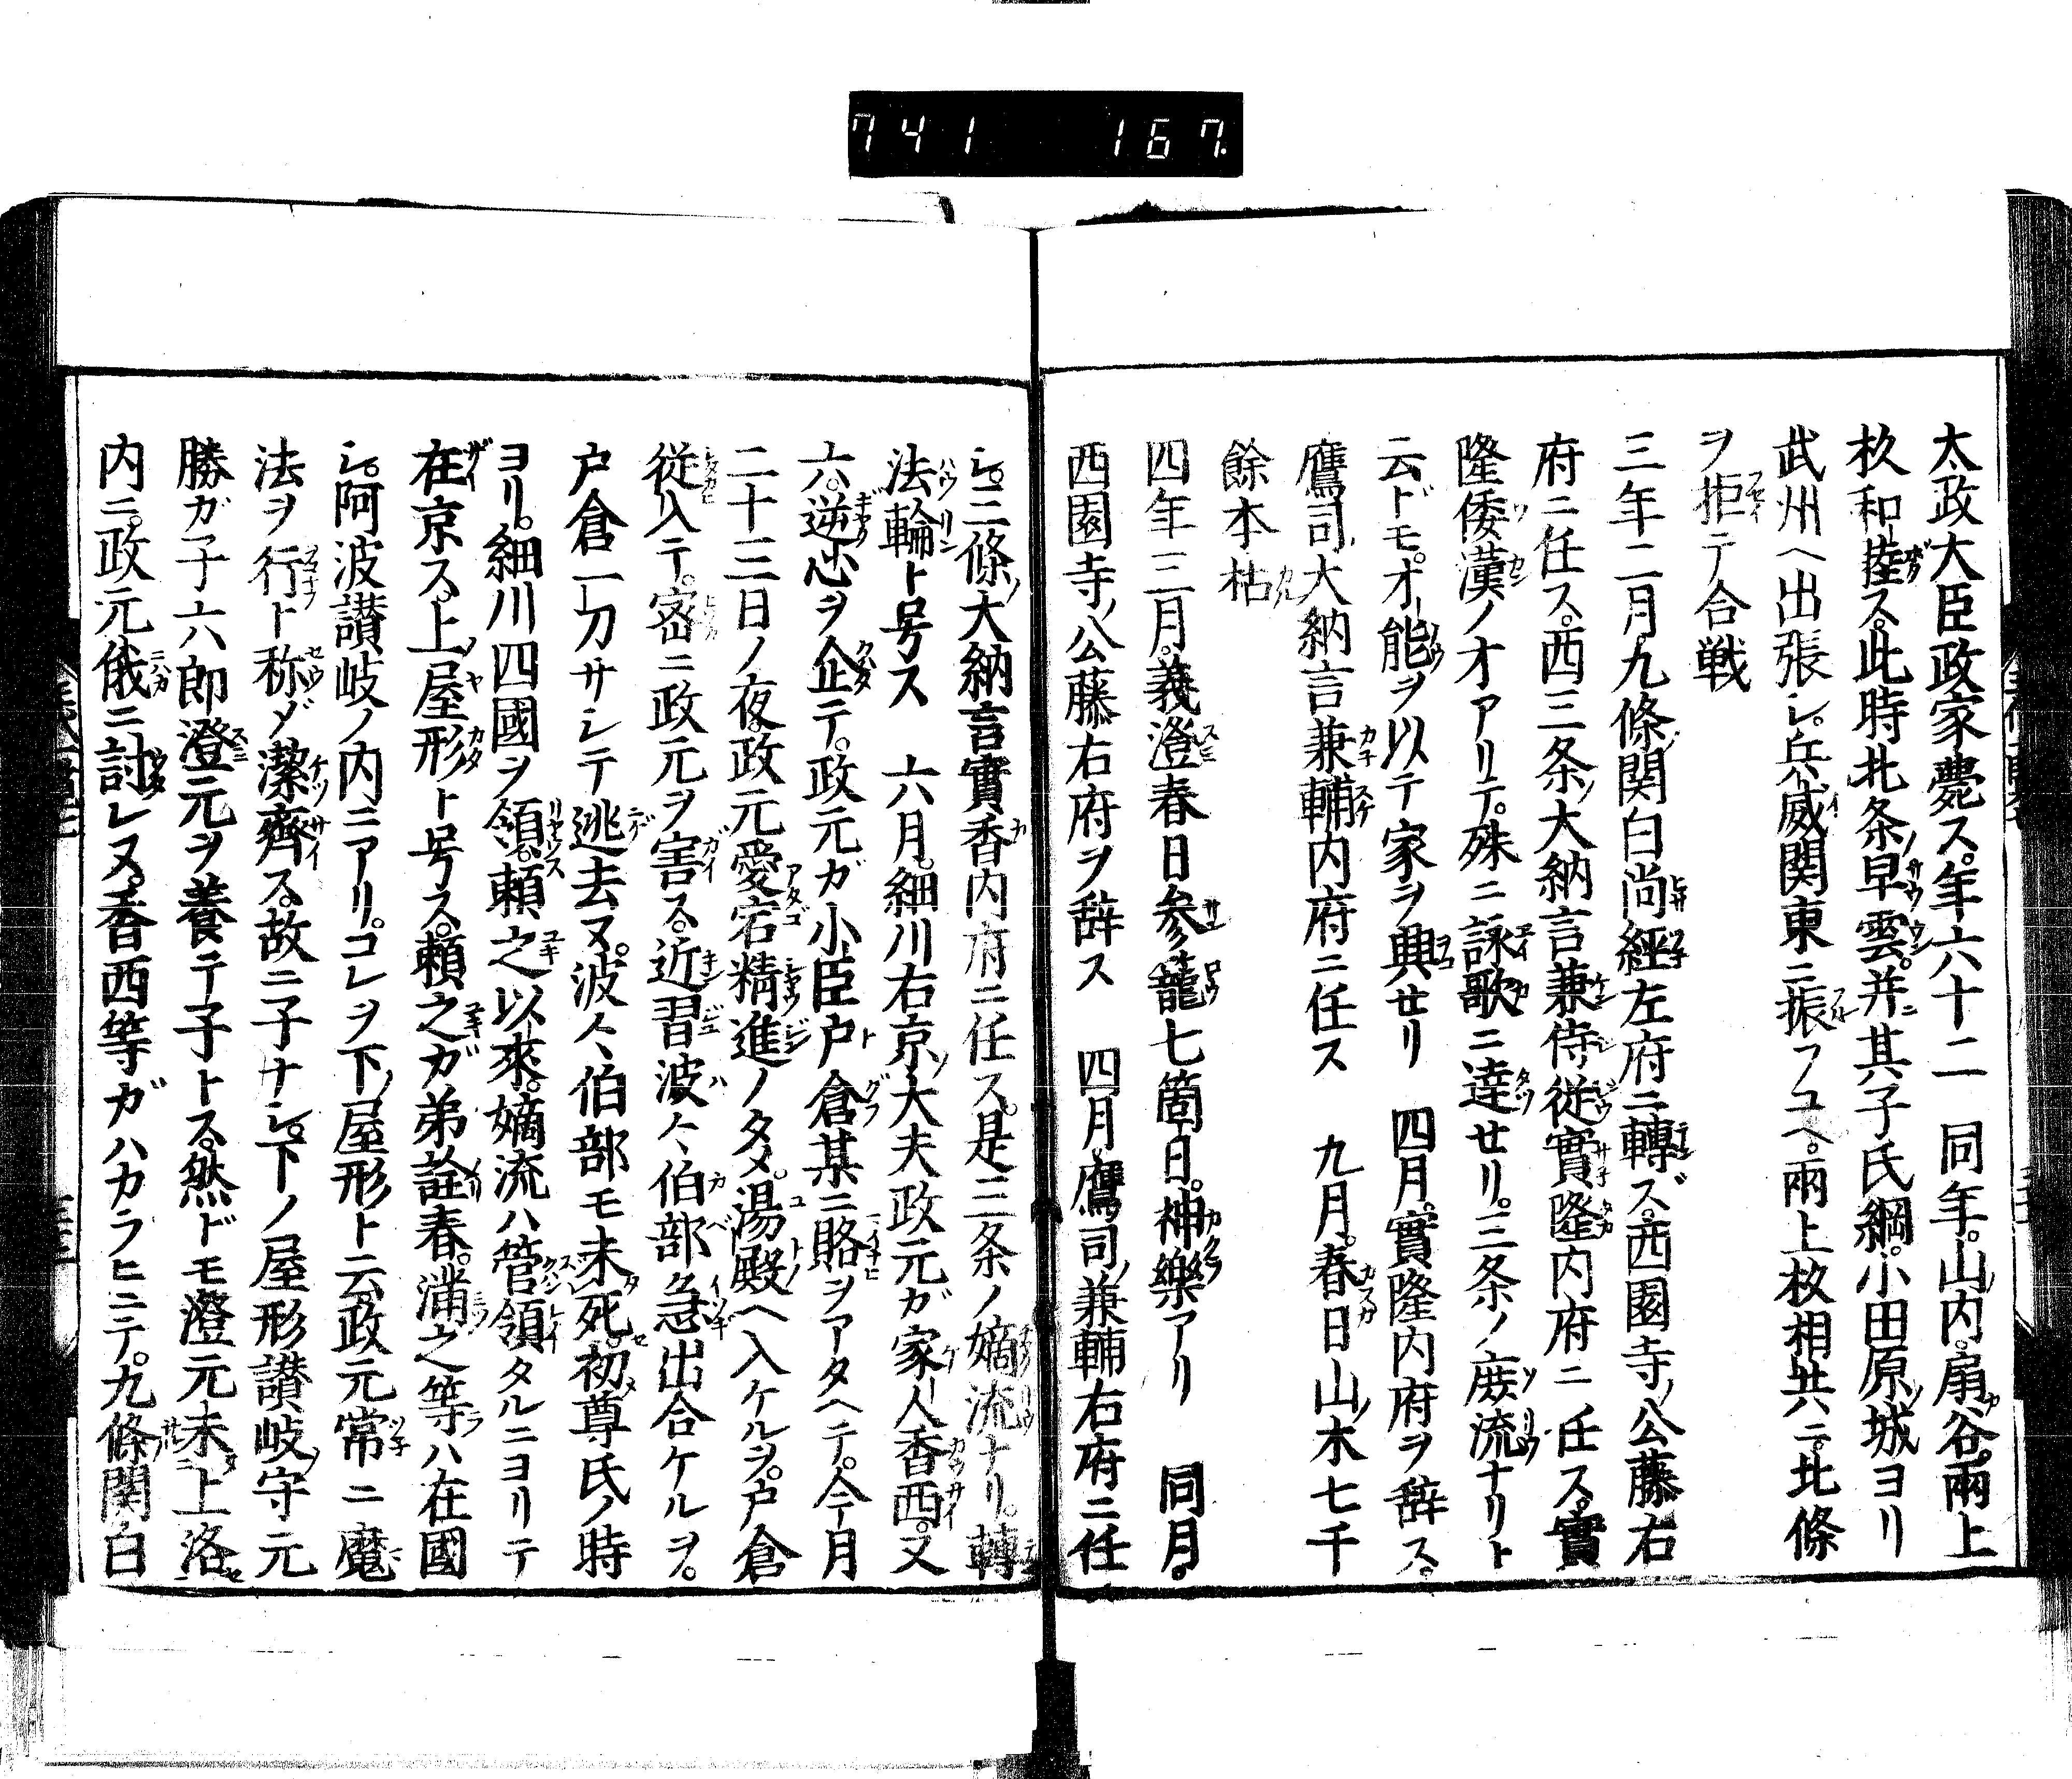 741 167
太政大臣政家薨ス。年六十二 同年。山内。扇谷。兩上
杦和睦ス。此時北条早雲。并其子氏綱。小田原城ヨリ
武州ヘ出張シ。兵威関東ニ振フユヘ。兩上杦相共ニ。北條
ヲ拒テ合戦
三年二月。九條関白尚經左府ニ轉ズ。西園寺公藤右
府ニ任ス。西三条大納言兼侍從實隆内府ニ任ス。實
隆倭漢ノオアリテ。殊ニ詠歌ニ達せリ。三条ノ庶流ナリト
云ドモ。オ能ヲ以テ家ヲ興せリ 四月。實隆内府ヲ辞ス。
鷹司大納言兼輔内府ニ任ス 九月。春日山ノ木七千
餘本枯
四年三月。義澄春日参籠七箇日。神樂アリ 同月。
西園寺公藤右府ヲ辞ス 四月。鷹司兼輔右府ニ任
シ。三條大納言實香内府ニ任ス。是三条ノ嫡流ナリ。轉
法輪ト号ス 六月。細川右京大夫政元ガ家人香西。又
六。逆心ヲ企テ。政元ガ小臣戸倉某ニ賂ヲアタヘテ。今月
二十三日ノ夜。政元愛宕精進ノタメ。湯殿ヘ入ケルヲ。戸倉
從入テ。密ニ政元ヲ害ス。近習波々伯部急出合ケルヲ。
戸倉一刀サシテ逃去ヌ。波々伯部モ未死。初尊氏ノ時
ヨリ。細川四國ヲ領。頼之以來。嫡流ハ管領タルニヨリテ
在京ス。上屋形ト号ス。頼之ガ弟詮春。満之等ハ在國
シ。阿波讃岐ノ内ニアリ。コレヲ下屋形ト云。政元常ニ魔
法ヲ行ト称メ潔齊ス。故ニ子ナシ。下ノ屋形讃岐守元
勝ガ子六郎澄元ヲ養テ子トス。然ドモ澄元未上洛
内ニ。政元俄ニ討レヌ。香西等ガハカラヒニテ。九條関白